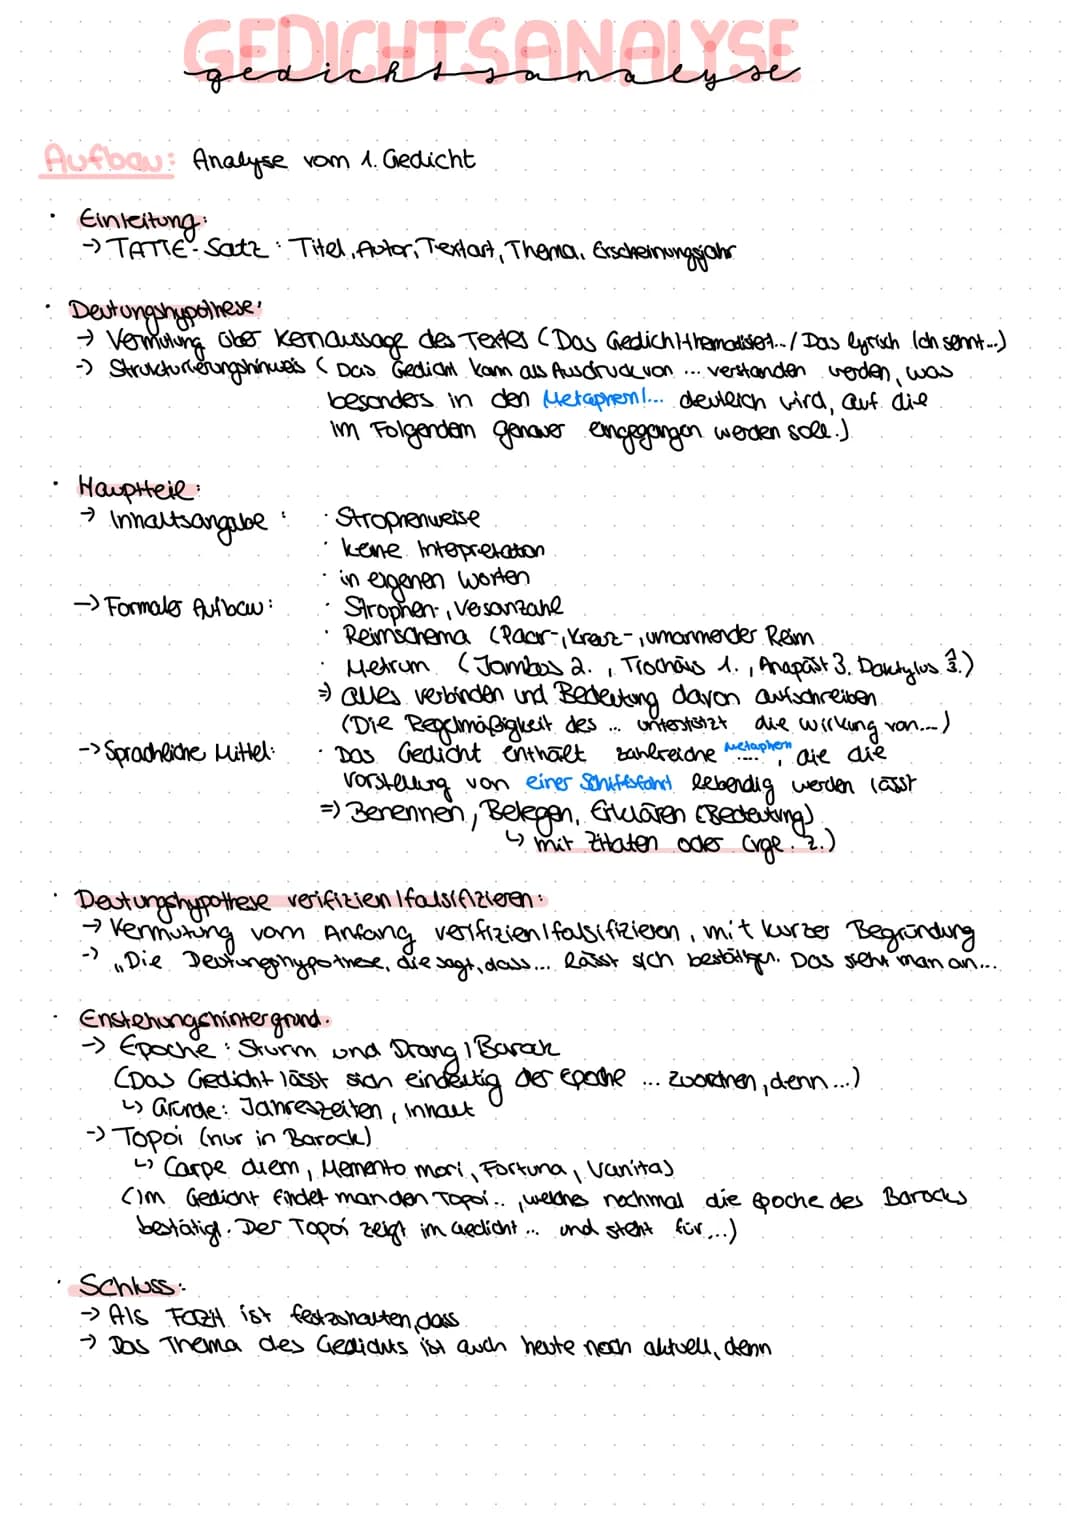 GEDICHTSANALYSE
gedichtsanalyse
Aufbau: Analyse vom 1. Gedicht
· Einleitung:
→ TATTE-Satz: Titel, Autor, Textart, Thema, Erscheinungsjahr
· Deutungshypothese:
→ Vermutung über Kernaussage des Textes (Das Gedicht thematisiert.. / Das lyrisch Ich sehnt...)
→ Strukturierungshinweis (Das Gedicht kann als Ausdruck von ... verstanden werden, was
besonders in den Metaphern/... deutlich wird, auf die
im Folgenden genauer eingegangen werden soll.)
· Hauptteil:
→ Inhaltsangabe: · Strophenweise
· keine Intepretation
· in eigenen Worten
→ Formaler Aufbau: · Strophen-, Vesanzahl
· Reimschema (Paar-, Kreuz-, umarmender Reim
· Metrum (Jambos 2., Trochäus 1., Anapäst 3. Daktylus 1/3.)
⇒ alles verbinden und Bedeutung davon aufschreiben
(Die Regelmäßigkeit des ... unterstützt die Wirkung von...)
→ Sprachliche Mittel: · Das Gedicht enthält zahlreiche Metaphern ...., die die
Vorstellung von einer Schiffsfahrt lebendig werden lässt
⇒ Benennen, Belegen, Erklären (Bedeutung)
↳ mit Zitaten oder (vgl. Z.)
· Deutungshypothese verifizien/falsifizieren:
→ Vermutung vom Anfang verifizien/falsifizieren, mit kurzer Begründung
→ „Die Deutungshypothese, die sagt, dass... lässt sich bestätigen. Das sieht man an...
· Enstehungshintergrund.
→ Epoche: Sturm und Drang / Barock
(Das Gedicht lässt sich eindeutig der Epoche ... zuordnen, denn...)
↳ Gründe: Jahreszeiten, Inhalt
→ Topoi (nur in Barock)
↳ Carpe diem, Memento mori, Fortuna, Vanitas
(Im Gedicht findet man den Topoi.., welches nochmal die Epoche des Barocks
bestätigt. Der Topoi zeigt im Gedicht... und steht für...)
· Schluss:
→ Als Fazit ist festzuhalten, dass
→ Das Thema des Gedichts ist auch heute noch aktuell, denn